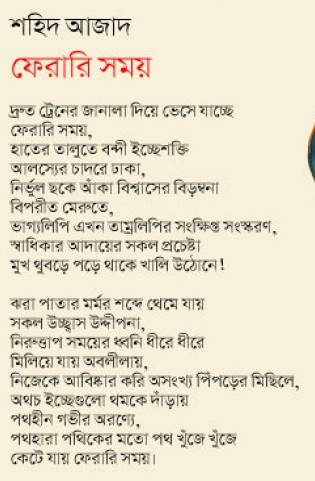 শহিদ আজাদ
ফেরারি সময়
দ্রুত ট্রেনের জানালা দিয়ে ভেসে যাচ্ছে
ফেরারি সময়,
হাতের তালুতে বন্দী ইচ্ছেশক্তি
আলস্যের চাদরে ঢাকা,
নির্ভুল ছকে আঁকা বিশ্বাসের বিড়ম্বনা
বিপরীত মেরুতে,
ভাগ্যলিপি এখন তাম্রলিপির সংক্ষিপ্ত সংস্করণ,
স্বাধিকার আদায়ের সকল প্রচেষ্টা
মুখ থুবড়ে পড়ে থাকে খালি উঠোনে!
ঝরা পাতার মর্মর শব্দে থেমে যায়
সকল উচ্ছ্বাস উদ্দীপনা,
নিরুত্তাপ সময়ের ধ্বনি ধীরে ধীরে
মিলিয়ে যায় অবলীলায়,
নিজেকে আবিষ্কার করি অসংখ্য পিঁপড়ের মিছিলে,
অথচ ইচ্ছেগুলো থমকে দাঁড়ায়
পথহীন গভীর অরণ্যে,
পথহারা পথিকের মতো পথ খুঁজে খুঁজে
কেটে যায় ফেরারি সময়।